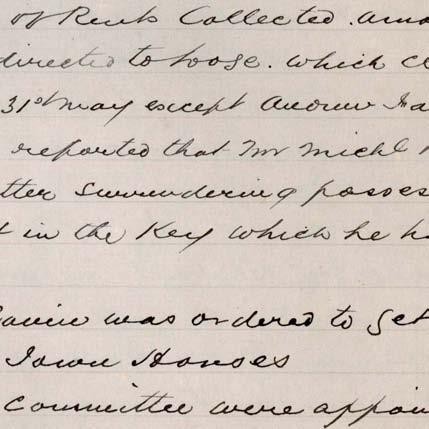 of Rents Collected. amo
directed to loose. which c
31st may except Andrew Ha
reported that Mr Michl
tter Surrendering posses
t in the Key which he h
was ordered to get
Town Houses
Committee were appoin